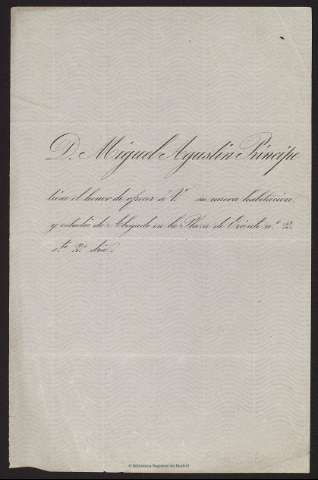 D. Miguel Agustin Principe
tiene el honor de ofrecer á V. su nueva habitacion
y estudio de Abogado en la Plaza de Oriente nº 2.
cto. 2º dra.
© Biblioteca Regional de Madrid